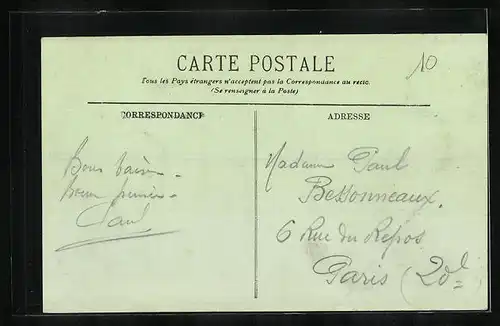 CARTE POSTALE
Tous les Pays étrangers n'acceptent pas la Correspondance au recto.
(Se renseigner à la Poste)
10
CORRESPONDANCE
ADRESSE
Bons baisers
Paul
Madame Paul
Bessonneaux,
6 Rue du Repos
Paris (20e)